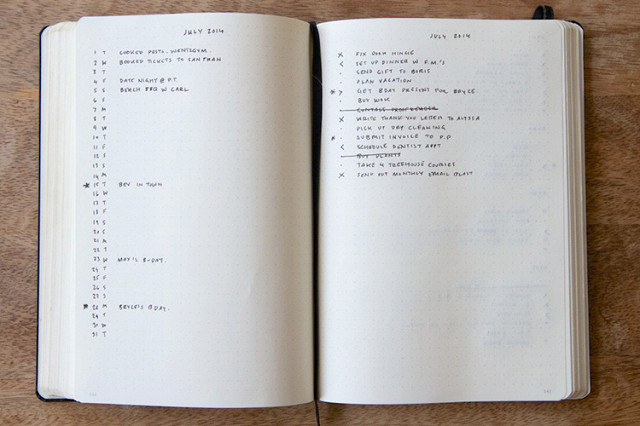 JULY 2014
1 T COOKED PESTO. WENT GYM.
2 W BOOKED TICKETS TO SAN FRAN
3 T
4 F DATE NIGHT @ P.T.
5 S BEACH BBQ W CARL
6 S
7 M
8 T
9 W
10 T
11 F
12 S
13 S
14 M
* 15 T BEV IN TOWN
16 W
17 T
18 F
19 S
20 S
21 M
22 T
23 W MAX'S B-DAY.
24 T
25 F
26 S
27 S
* 28 M BRYCE'S BDAY.
29 T
30 W
31 T
JULY 2014
X FIX DOOR HINGE
< SET UP DINNER W F.M.'S
· SEND GIFT TO BOBIE
· PLAN VACATION
* > GET BDAY PRESENT FOR BRYCE
· BUY WOK
CONTACT PROOFREADER
X WRITE THANK YOU LETTER TO ALYSSA
· PICK UP DRY CLEANING
* · SUBMIT INVOICE TO P.P
< SCHEDULE DENTIST APPT
BUY PLANTS
· TAKE 4 TREEHOUSE COURSES
X SEND OUT MONTHLY EMAIL BLAST